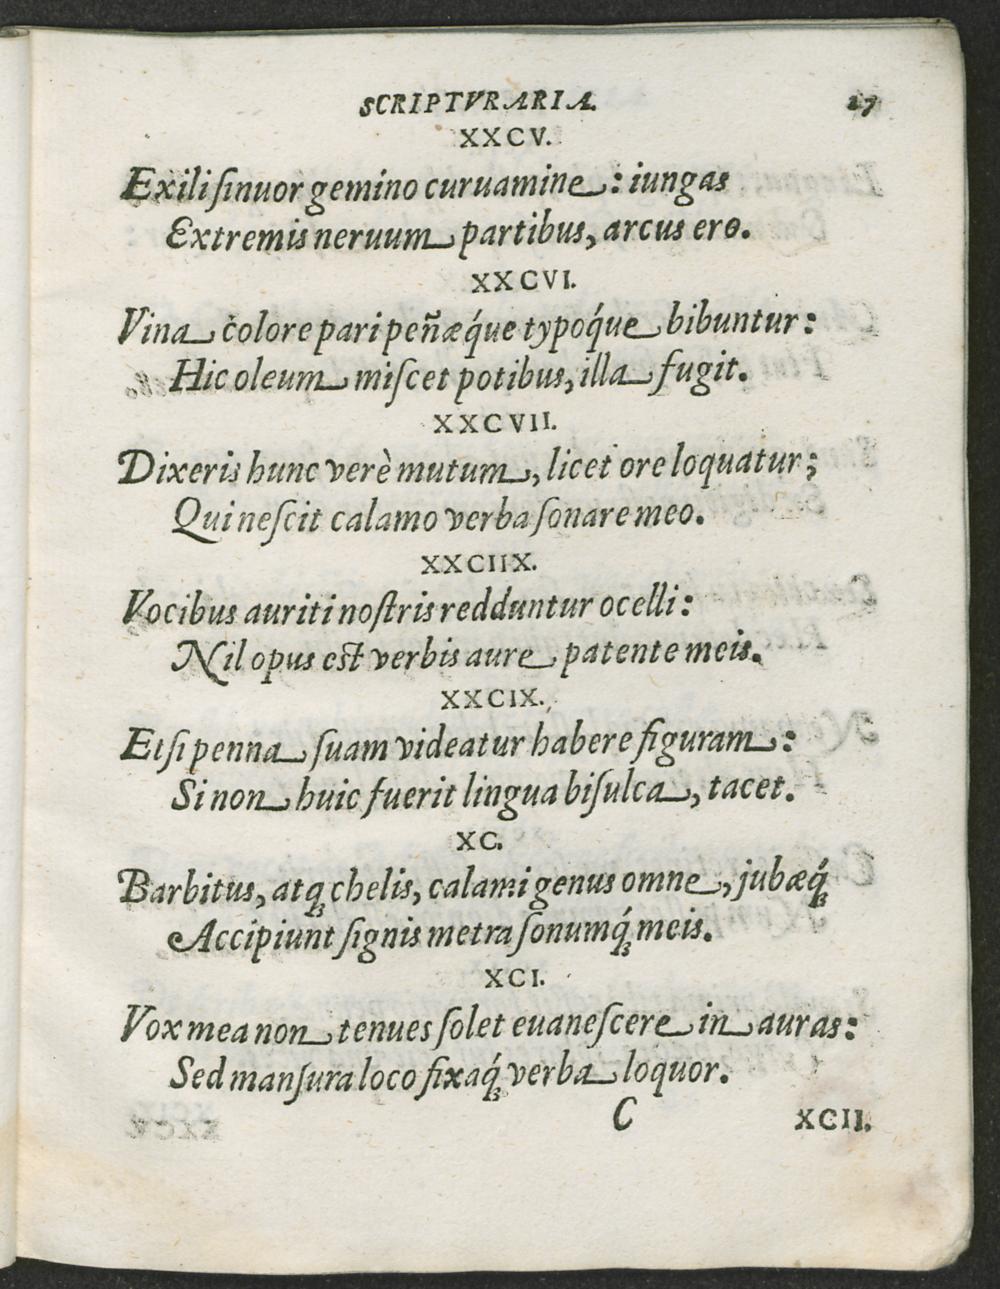 SCRIPTVRARIA. 17
XXCV.
Exili ſinuor gemino curuamine: iungas
Extremis neruum partibus, arcus ero.
XXCVI.
Vina colore pari peñæq́ue typoq́ue bibuntur:
Hic oleum miſcet potibus, illa fugit.
XXCVII.
Dixeris hunc verè mutum, licet ore loquatur;
Qui neſcit calamo verba ſonare meo.
XXCIIX.
Vocibus auriti noſtris redduntur ocelli:
Nil opus eſt verbis aure patente meis.
XXCIX.
Etſi penna ſuam videatur habere figuram:
Si non huic fuerit lingua biſulca, tacet.
XC.
Barbitus, atqꝫ chelis, calami genus omne, jubæq́ꝫ
Accipiunt ſignis metra ſonumq́ꝫ meis.
XCI.
Vox mea non tenues ſolet euaneſcere in auras:
Sed manſura loco fixaq́ꝫ verba loquor.
C XCII.